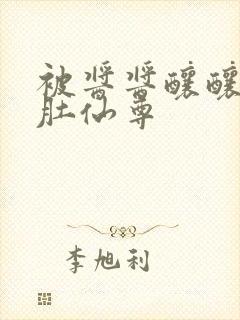 被酱酱酿酿
肚仙尊
李旭利